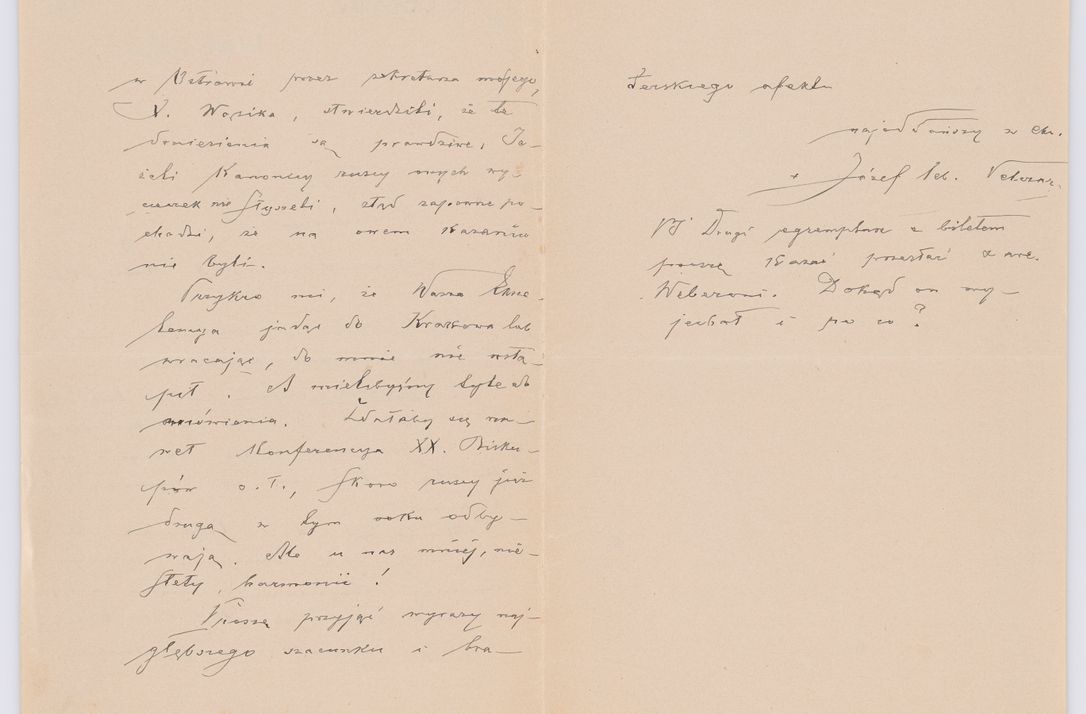 w Ustroniu przez sekretarza mojego,
X. Wosika, stwierdzili, że te
doniesienia są prawdziwe; Je-
żeli Kanonicy ruscy owych wy-
cieczek nie słyszeli, stąd zapewne po-
chodzi, że na owem kazaniu
nie byli.
Przykro mi, że Wasza Eksce-
lencya jadąc do Krakowa lub
wracając, do mnie nie wstą-
pił. A mielibyśmy tyle do
mówienia. Zdałaby się na-
wet Konferencya XX. Bisku-
pów o. ł., skoro ruscy już
drugą w tym roku odby-
wają. Ale u nas mniej, nie-
stety, harmonii!
Proszę przyjąć wyrazy naj-
głębszego szacunku i bra-
terskiego afektu
najoddańszy w Chr.
+ Józef Seb. Pelczar
Drugi egzemplarz z biletem
proszę kazać przesłać X are.
Weberowi. Dokąd on wy-
jechał i po co?